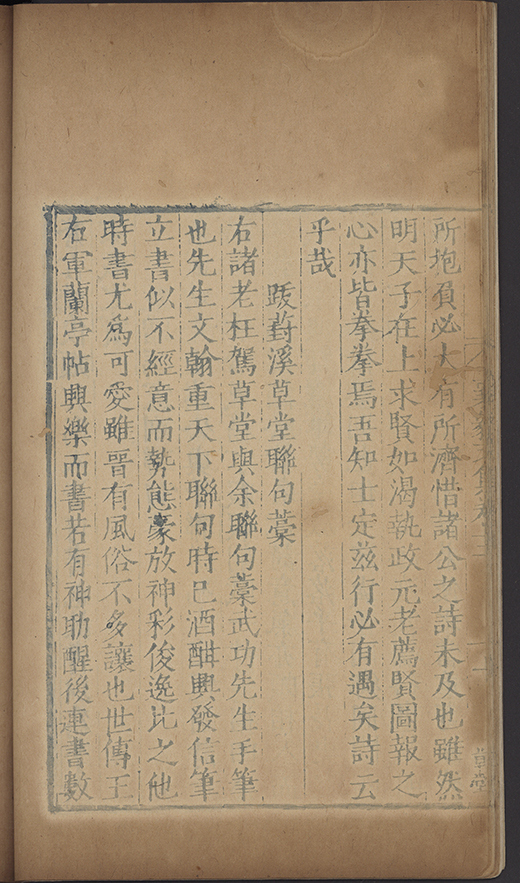 所抱負必大有所濟惜諸公之詩未及也雖然
明天子在上求賢如渴執政元老薦賢圖報之
心亦皆拳拳焉吾知士定茲行必有遇矣詩云
乎哉
跋葑溪草堂聯句藁
右諸老枉駕草堂與余聯句藁武功先生手筆
也先生文翰重天下聯句時已酒酣興發信筆
立書似不經意而勢態豪放神彩俊逸比之他
時書尤爲可愛雖晉有風俗不多讓也世傳王
右軍蘭亭帖興樂而書若有神助醒後連書數
草堂